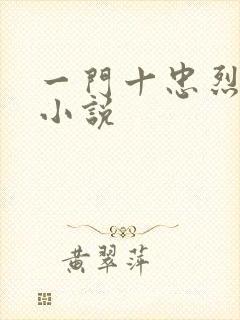 一門十忠烈
小說
黃翠萍